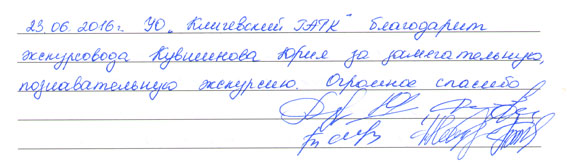 23.06.2016г. УО „Кличевский ГАТК" благодарит
экскурсовода Кувшинова Юрия за замечательную,
познавательную экскурсию. Огромное спасибо